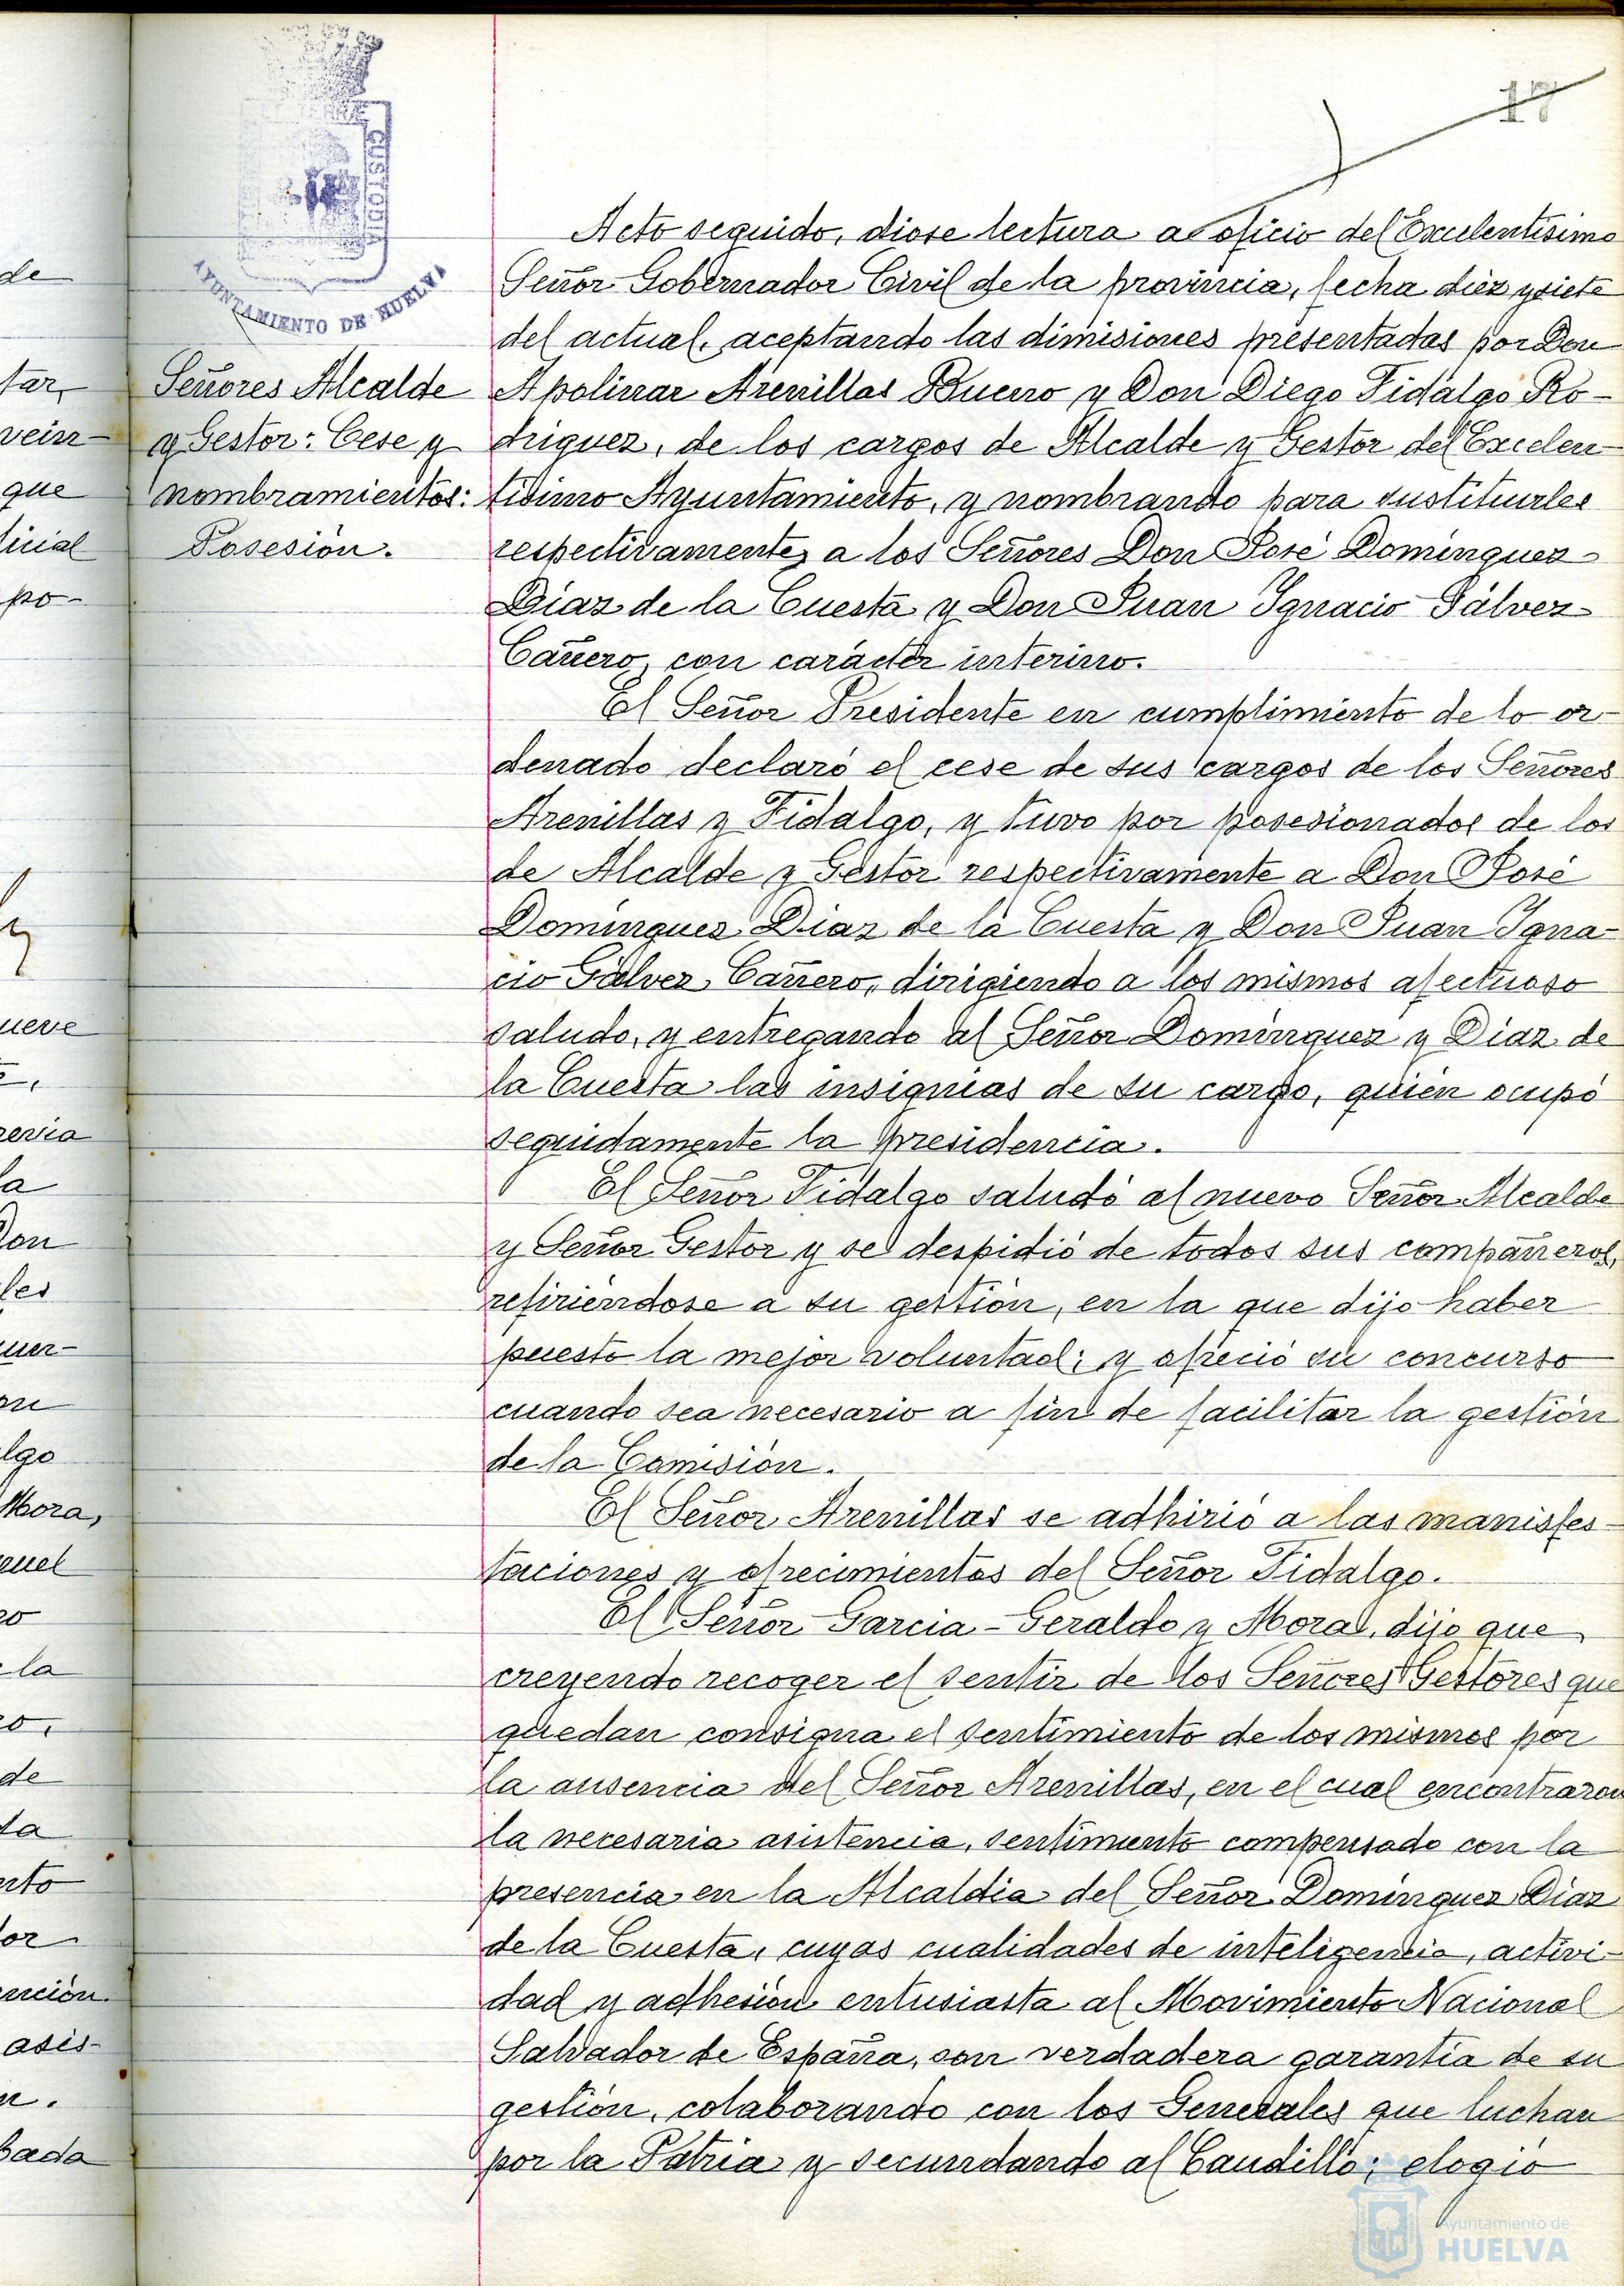 17
CUSTODIA
AYUNTAMIENTO DE HUELVA
Señores Alcalde
y Gestor: Cese y
nombramientos:
Posesión.
Acto seguido, diose lectura a oficio del Excelentísimo
Señor Gobernador Civil de la provincia, fecha diez y siete
del actual, aceptando las dimisiones presentadas por Don
Apolinar Arenillas Bueno y Don Diego Fidalgo Ro-
driguez, de los cargos de Alcalde y Gestor del Excelen-
tísimo Ayuntamiento, y nombrando para sustituirles
respectivamente, a los Señores Don José Dominguez
Diaz de la Cuesta y Don Juan Ignacio Gálvez
Cañero, con carácter interino.
El Señor Presidente en cumplimiento de lo or-
denado declaró el cese de sus cargos de los Señores
Arenillas y Fidalgo, y tuvo por posesionados de los
de Alcalde y Gestor respectivamente a Don José
Dominguez Diaz de la Cuesta y Don Juan Igna-
cio Gálvez Cañero, dirigiendo a los mismos afectuoso
saludo, y entregando al Señor Dominguez y Diaz de
la Cuesta las insignias de su cargo, quien ocupó
seguidamente la presidencia.
El Señor Fidalgo saludó al nuevo Señor Alcalde
y Señor Gestor y se despidió de todos sus compañeros,
refiriéndose a su gestión, en la que dijo haber
puesto la mejor voluntad; y ofreció su concurso
cuando sea necesario a fin de facilitar la gestión
de la Comisión.
El Señor Arenillas se adhirió a las manisfes-
taciones y ofrecimientos del Señor Fidalgo.
El Señor Garcia-Geraldo y Mora, dijo que
creyendo recoger el sentir de los Señores Gestores que
quedan consigna el sentimiento de los mismos por
la ausencia del Señor Arenillas, en el cual encontraron
la necesaria asistencia, sentimiento compensado con la
presencia en la Alcaldia del Señor Dominguez Diaz
de la Cuesta, cuyas cualidades de inteligencia, activi-
dad y adhesión entusiasta al Movimiento Nacional
Salvador de España, son verdadera garantía de su
gestión, colaborando con los Generales que luchan
por la Patria y secundando al Caudillo; elogió
Ayuntamiento de
HUELVA